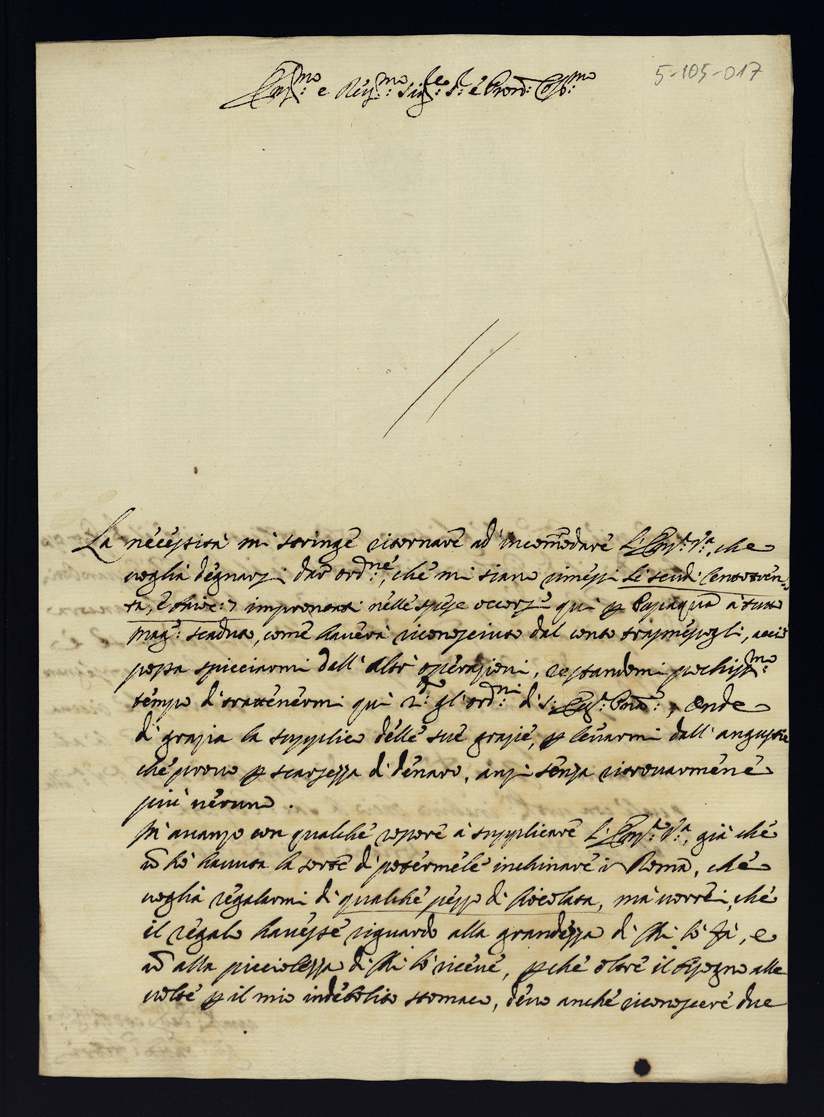 5-105-017
Em.mo e Rev.mo Sig.re S.r e Pron: Col.mo
La necessità mi stringe ritornare ad' incomodare l'Em.a V.a, che
voglia degnarsi dar ord.ne, che mi siano rimessi li scudi Centotren-
ta, e improntati nelle spese occorse qui p a tutto
Mag: scaduto, come haverà riconosciuto dal conto trasmessogli, acciò
possa spicciarmi dall' altre operazioni, restandomi pochiss.mo
tempo di trattenermi qui gl'ord.ni di S. , onde
di grazia la supplico delle sue grazie, p levarmi dall' angustie
che provo p scarsezza di denaro, anzi senza ritrovarmene
più neruno.
M'avanzo con qualche rossore à supplicare l'Em.a V.a, già che
nò hò havuta la sorte di potermele inchinare in Roma, che
voglia regalarmi di qualche pezzo di Ciocolata, mà vorrei, che
il regalo havesse riguardo alla grandezza di chi lo fà, e
nò alla picciolezza di chi lo riceve, p che oltre il bisogno alle
volte p il mio indebolito stomaco, devo anche riconoscere due